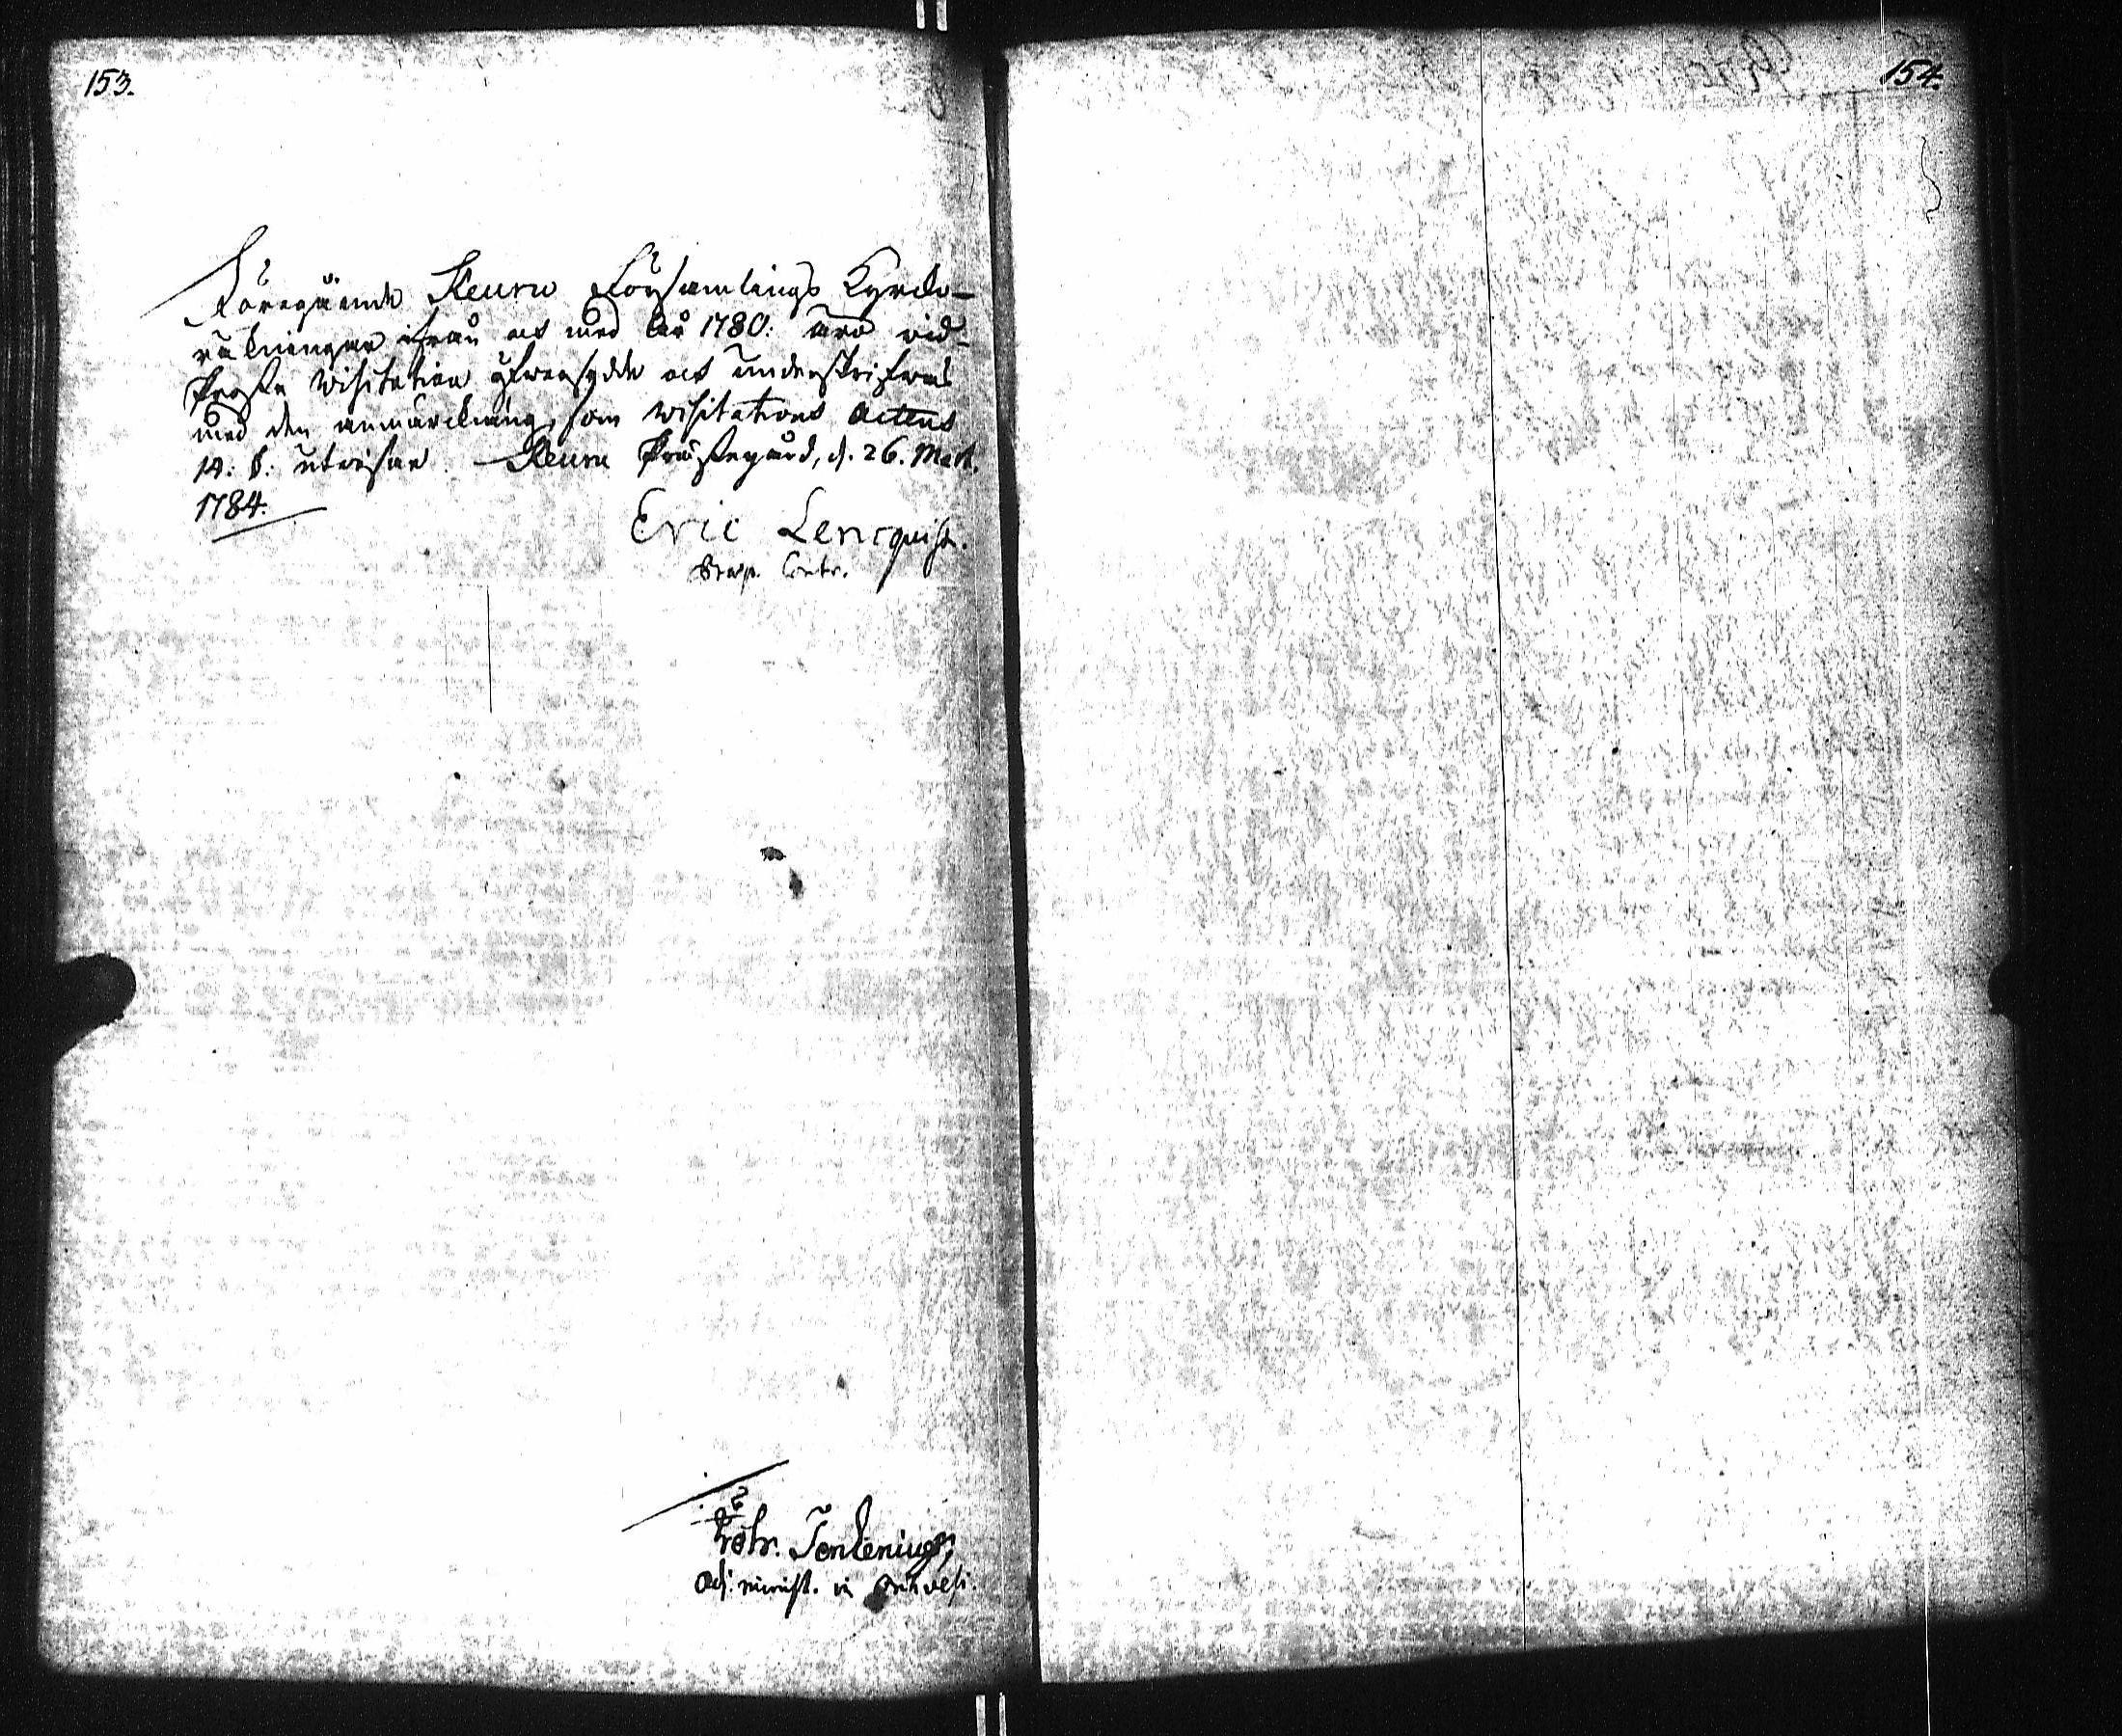 153.
Föregående Keuru Församlings Kyrcko-
räkningar ifrån och med år 1780. äro vid
Prosta Visitation öfversedde och underskrifvne
med den anmärckning, som Visitations Actens
14. §. utvisar. Keuru Prästegård, d. 26. Mart.
1784.
Eric Lencquist.
Præp. Contr.
Adj. minist. in
154.